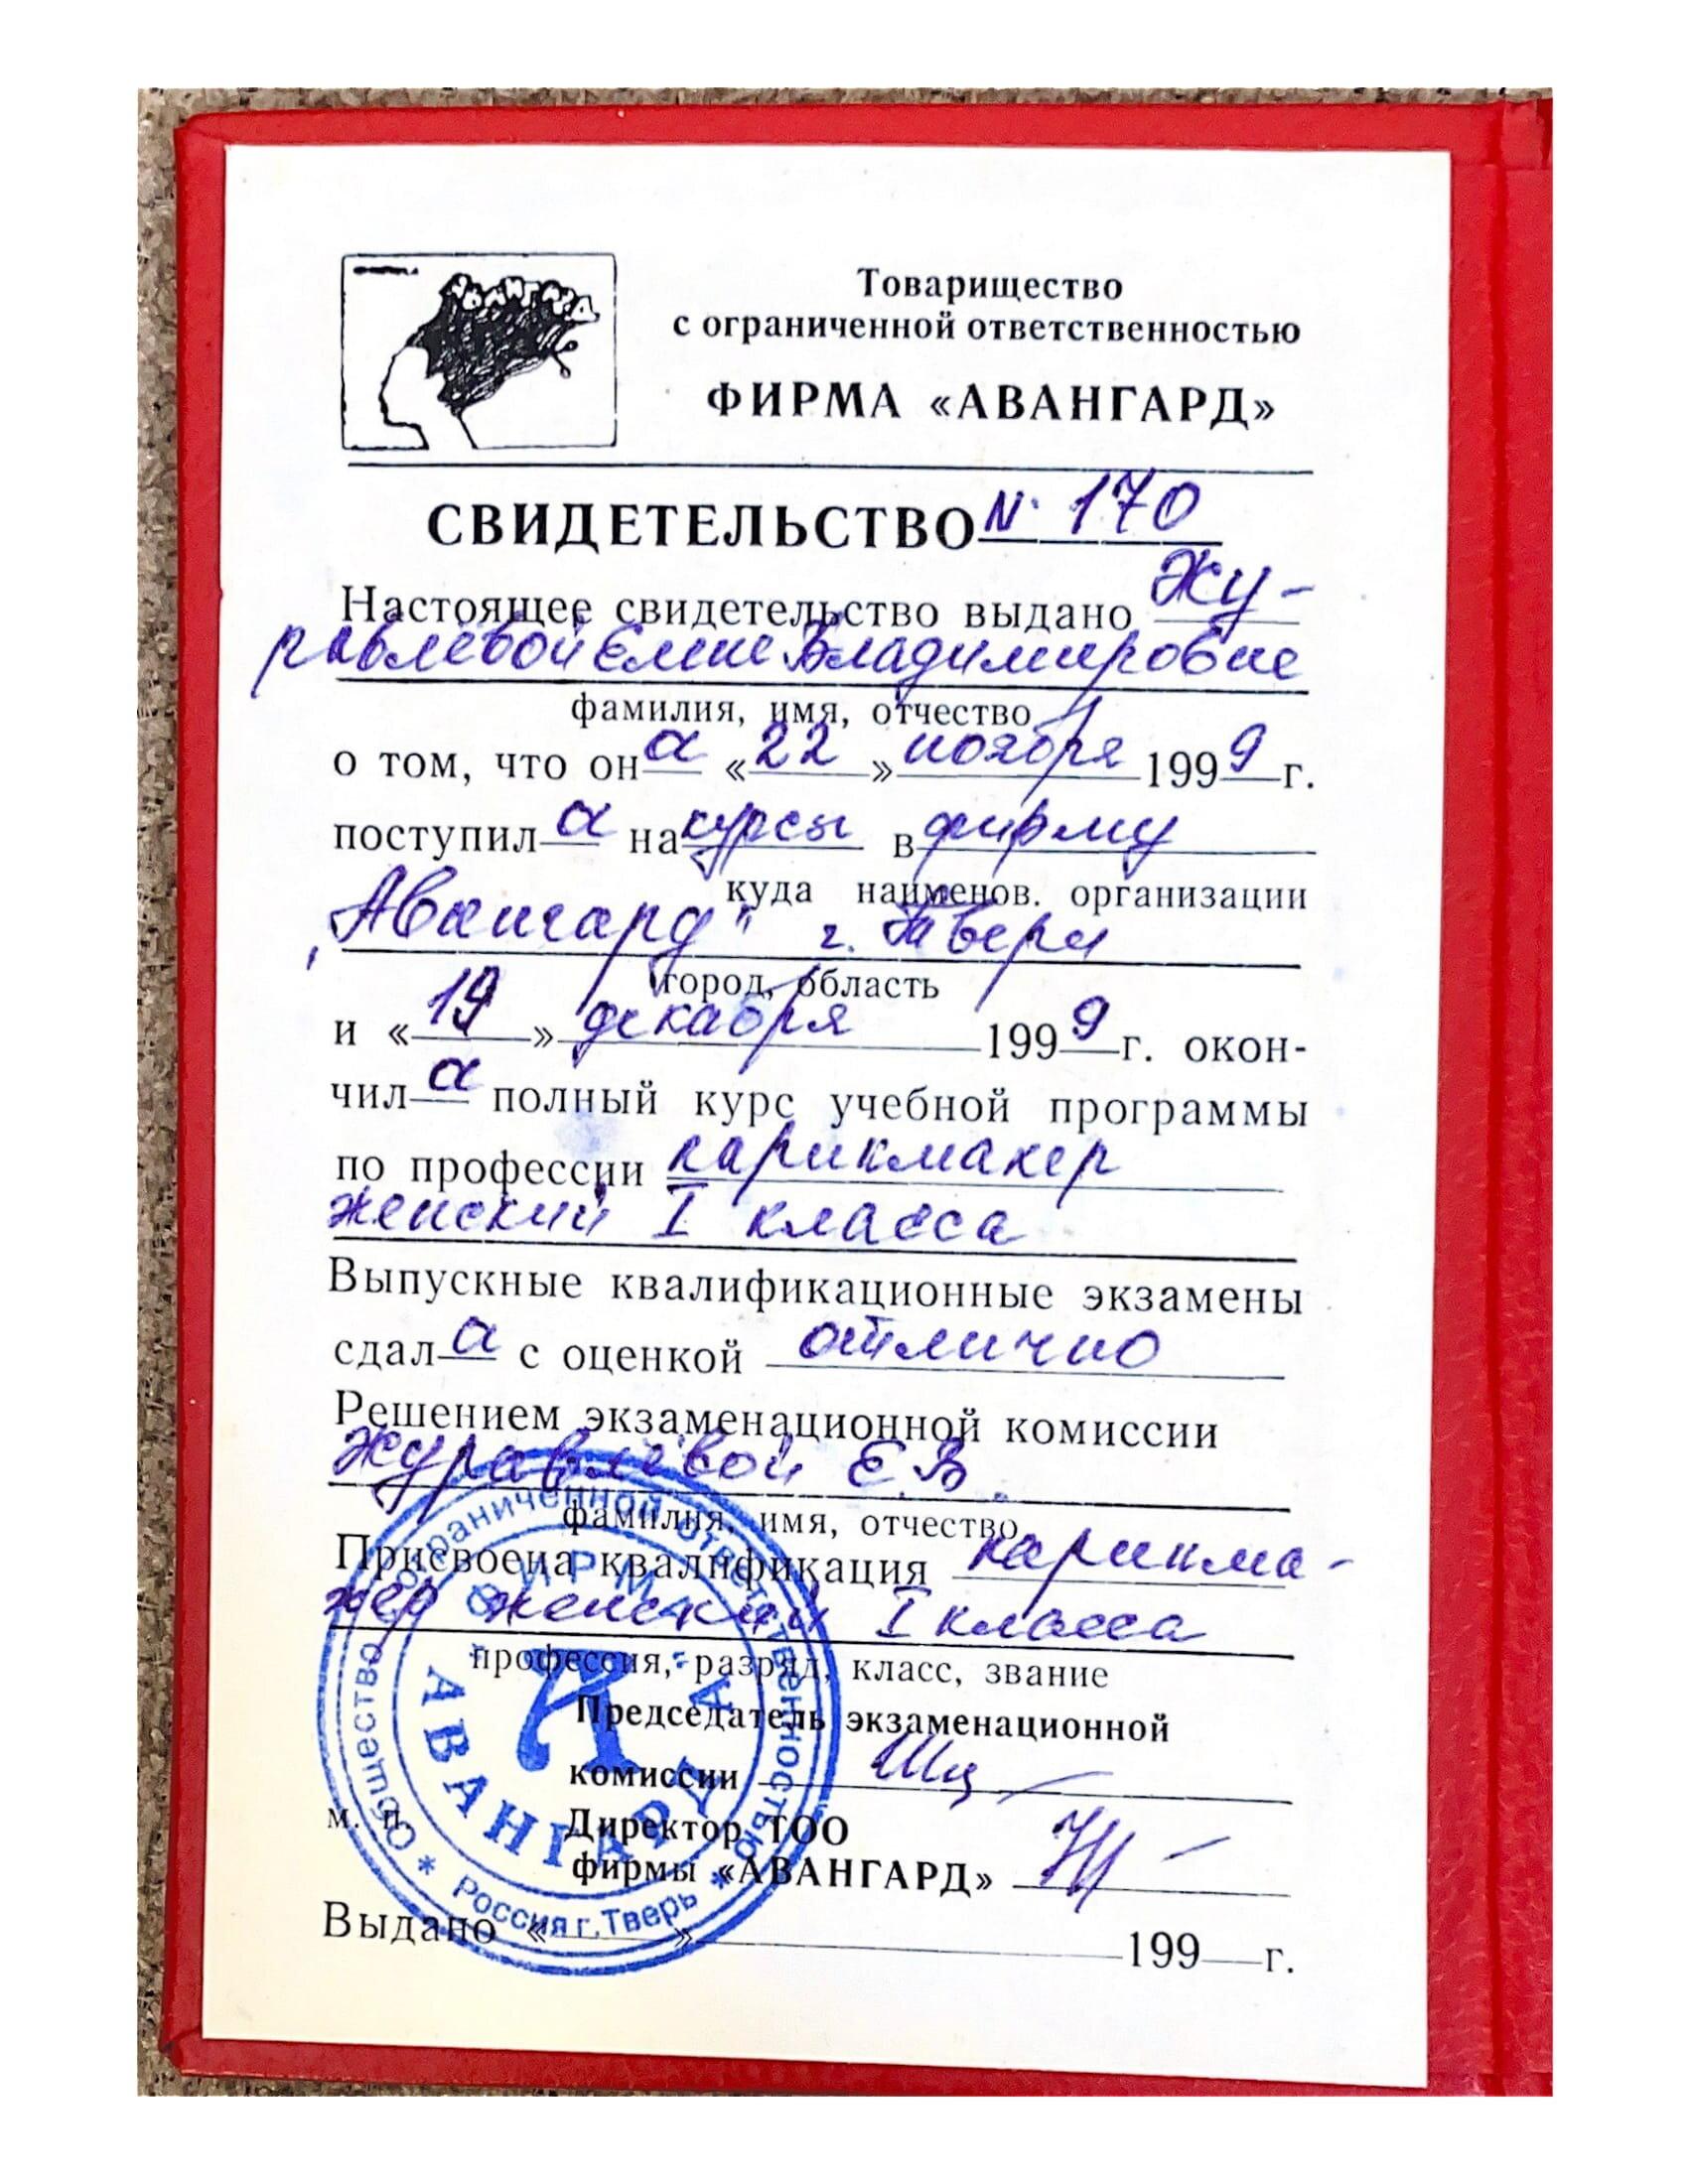 АВАНГАРД
Товарищество
с ограниченной ответственностью
ФИРМА «АВАНГАРД»
СВИДЕТЕЛЬСТВО № 170
Настоящее свидетельство выдано Жу-
равлёвой Елене Владимировне
фамилия, имя, отчество
о том, что он а «22» ноября 1999 г.
поступил а на курсы в фирму
куда наименов. организации
"Авангард" г. Твери
город, область
и «19» декабря 1999 г. окон-
чил а полный курс учебной программы
по профессии парикмахер
женский I класса
Выпускные квалификационные экзамены
сдал а с оценкой отлично
Решением экзаменационной комиссии
Журавлёвой Е.В.
фамилия, имя, отчество
Присвоена квалификация парикма-
хер женский I класса
профессия, разряд, класс, звание
Председатель экзаменационной
комиссии
м. п.
Директор ТОО
фирмы «АВАНГАРД»
Выдано « » 199 г.
Общество с ограниченной ответственностью
* Россия г.Тверь *
ФИРМА
АВАНГАРД-А